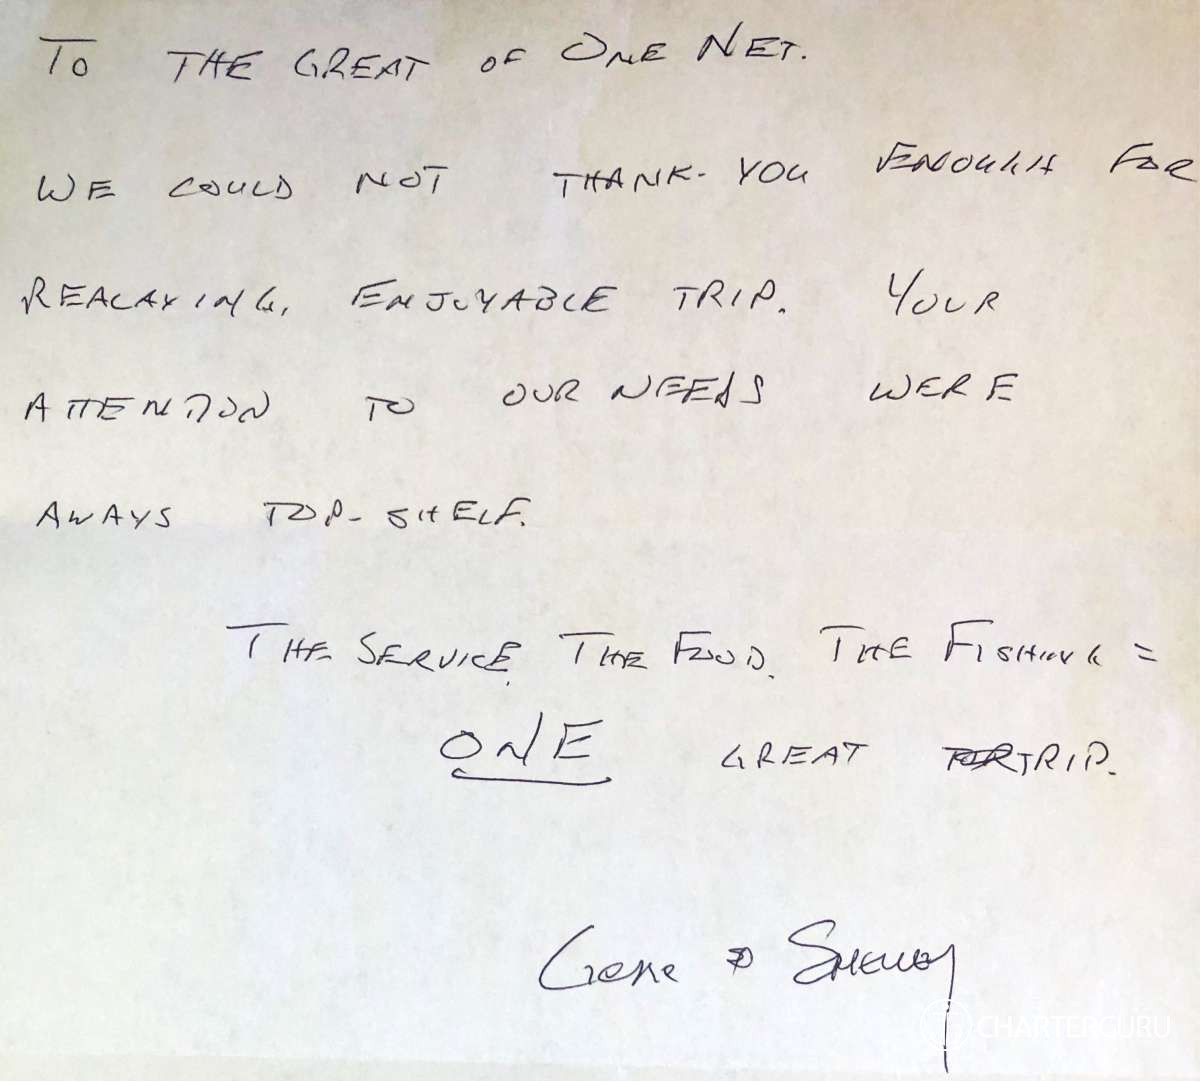 TO THE GREAT OF ONE NET.
WE COULD NOT THANK-YOU ENOUGH FOR
REALAXING, ENJOYABLE TRIP. YOUR
ATTENTION TO OUR NEEDS WERE
AWAYS TOP-SHELF.
THE SERVICE. THE FOOD. THE FISHING =
ONE GREAT TRIP.
Gene & SHELLEY
CHARTERGURU